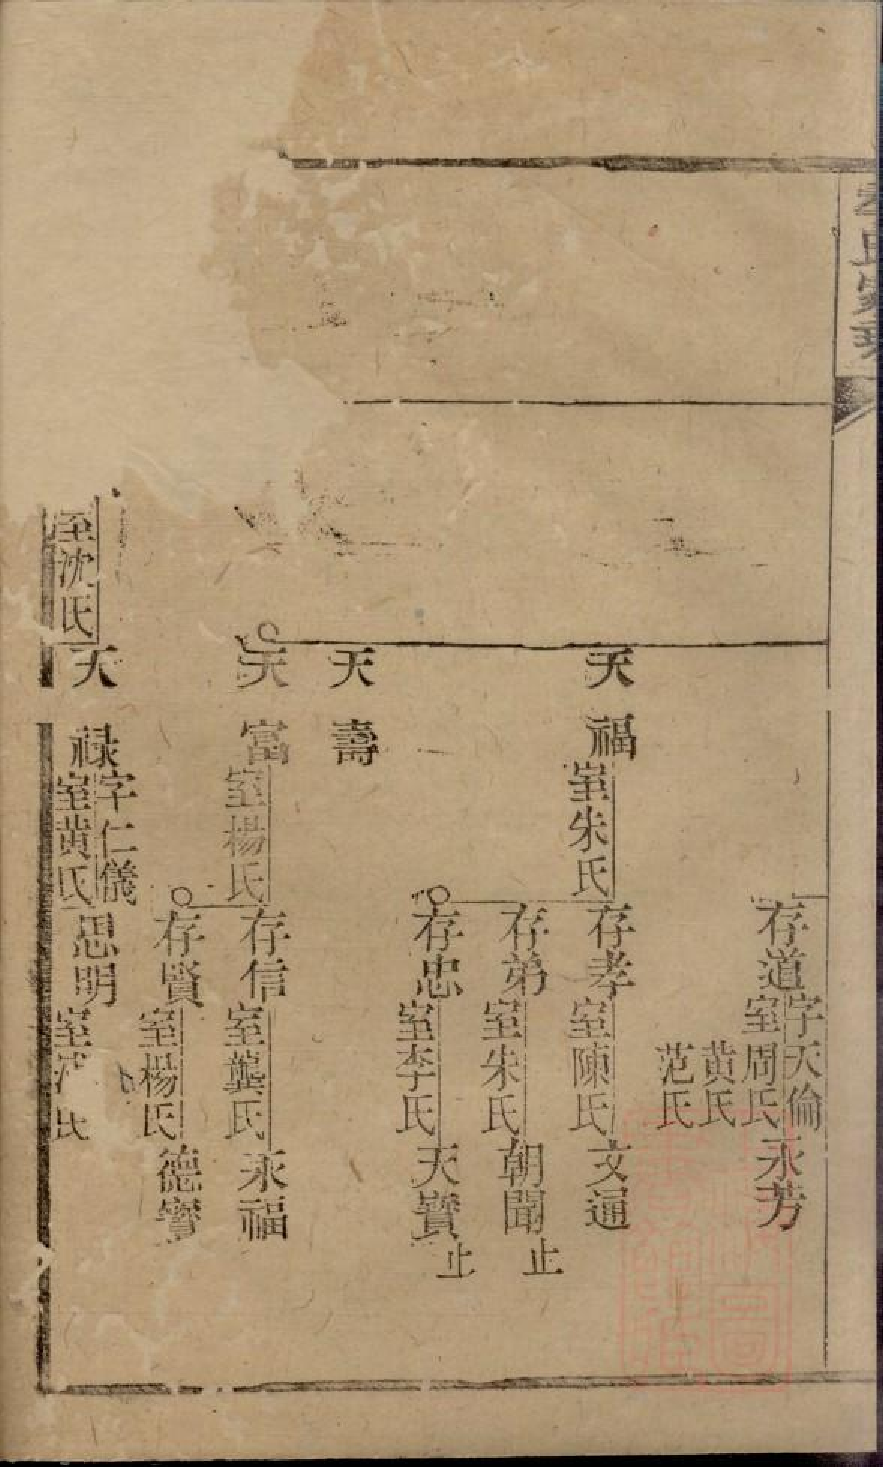 氏家
存道字天倫室周氏
黄氏
范氏
永芳
天福室朱氏
存孝室陳氏
文通
存弟室朱氏
朝聞止
存忠室李氏
天寳止
天壽
天富室楊氏
存信室龔氏
永福
存賢室楊氏
德寳
室沈氏
天禄字仁儀室黄氏
思明室氏